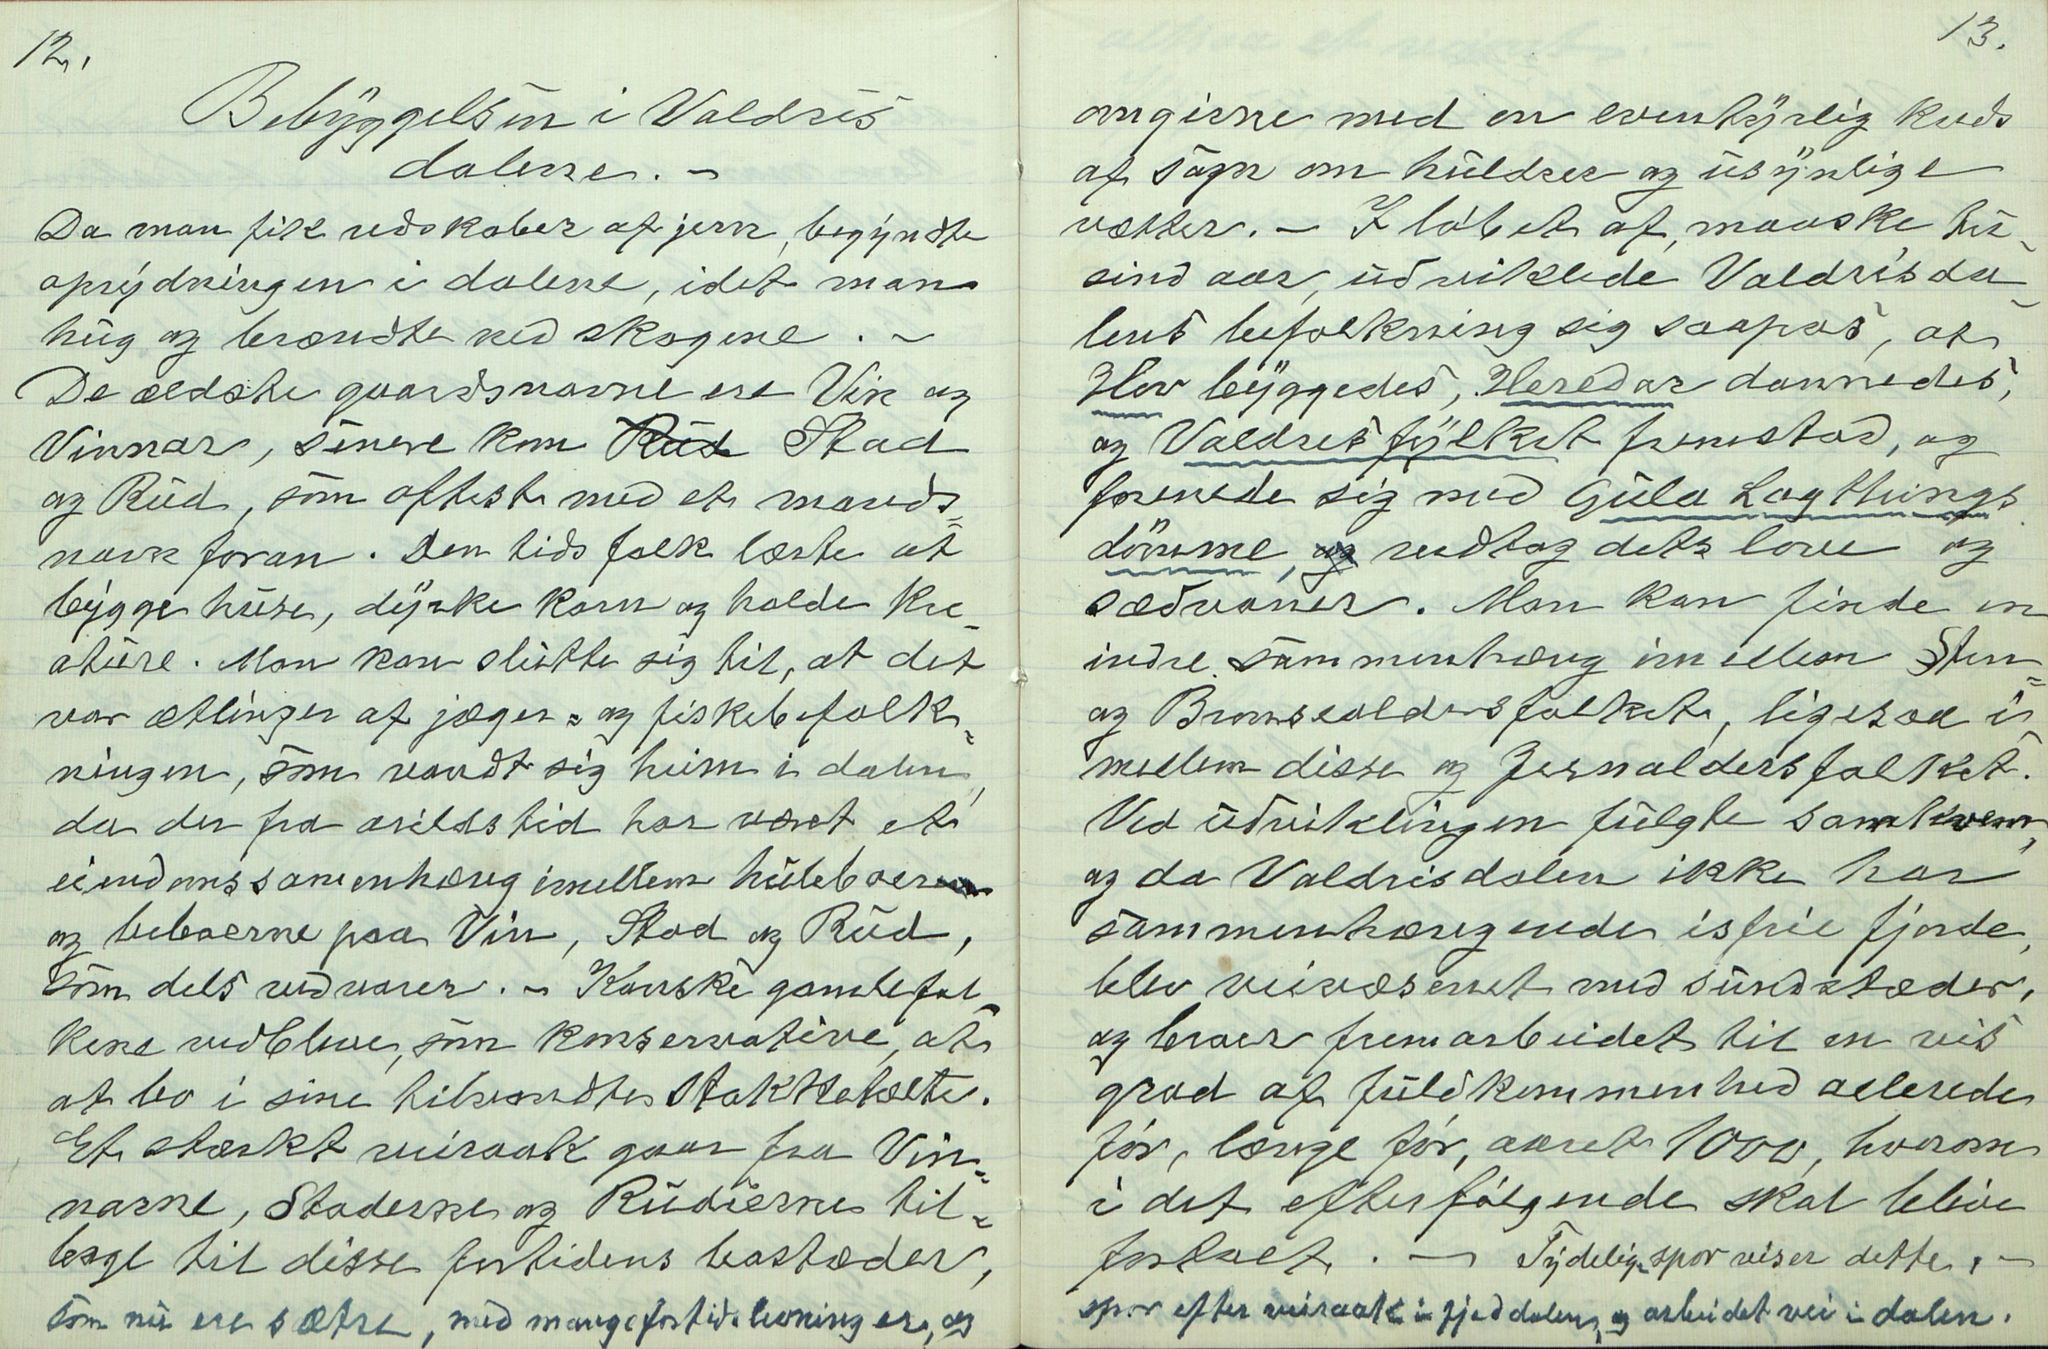 12.
Bebyggelsen i Valdres
dalene. -
Da man fik redskaber af jern, begyndte
oprydningen i dalene, idet man
hug og brændte ned skogene. -
De ældste gaardsnavne ere Vin og
Vinnar, senere kom Rud Stad
og Rud, som oftest med et mands=
navn foran. Den tids folk lærte at
bygge huse, dyrke korn og holde kre-
ature. Man kan slutte sig til, at det
var ætlinger af jæger= og fiskebefolk=
ningen, som vandt sig heim i dalen,
da der fra arilds tid har været et
eiendomssamenhæng imellem huleboer
og beboerne paa Vin, Stad og Rud,
som dels vedvarer. - Kanske gamlefol-
kene vedbleve, som konservative, at
at bo i sine tilvandte Stakttetælte.
Et stærkt veiraak gaar fra Vin=
narne, Staderne og Rudierne til=
bage til disse fortidens bostæder,
som nu ere sætre, med mange fortidslevninger, og
13.
omgivne med en eventyrlig kreds
af sagn om huldrer og usynlige
vætter. - I løbet af, maaske tu-
sind aar, udviklede Valdrisda-
lens befolkning sig saapas, at
Hov byggedes, Heredar dannedes,
og Valdresfylket fremstod, og
forenede sig med Gula Lagthings
dømme, og vedtog dets love og
sædvaner. Man kan finde en
indre sammenhæng imellem Sten=
og Bronsealdersfolket, ligesaa i-
mellem disse og Jernaldersfolket.
Ved udviklingen fulgte samkvem,
og da Valdrisdalen ikke har
sammenhængende isfrie fjorde,
blev veivæsenet med sundstæder,
og broer fremarbeidet til en vis
grad af fuldkommenhed allerede
før, længe før, aaret 1000, hvorom
i det efterfølgende skal blive
fortalt. - Tydelige spor viser dette. -
spor efter veiraak i fjeddalen, og arbeidet vei i dalen.